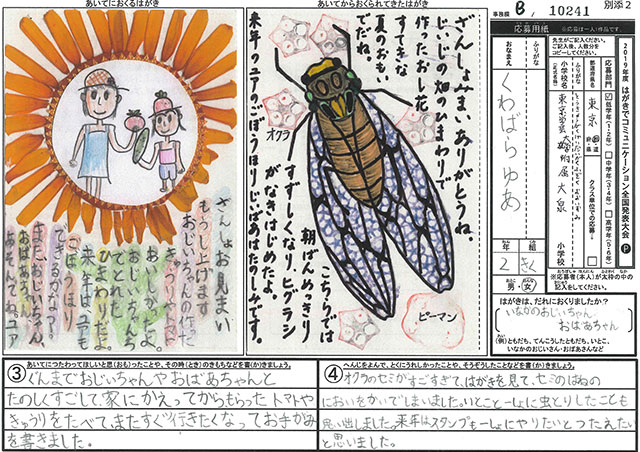 あいてにおくるはがき
あいてからおくられてきたはがき
事務局 B / 10241
別添2
ざんしょお見まい
もうし上げます
おじいちゃんの作った
きゅうりやトマト
おいしかったよ。
ひまわりもうちで
とれたよ
来年は、ユアも
ごぼうほり
できるかなぁ?
また、おじいちゃん
おばあちゃん
あそんでね。ユア
ざんしょみまいありがとうね。
じいじの畑のひまわりで
作ったおし花
すてきな
夏のおも
でだね。
オクラ
こちらでは
朝ばんめっきり
すずしくなり、ヒグラシ
がなきはじめたよ。
来年のユアのごぼうほりじいばあはたのしみです。
ピーマン
応募用紙
※応募は一人1作品です。
2019年度 はがきでコミュニケーション全国発表大会 P
先生がご記入ください。
ご記入後、人数分を
コピーしてください。
応募部門
☑低学年(1・2年)
□中学年(3・4年)
□高学年(5・6年)
都道府県名
東京
都・道
府・県
クラス単位での応募
ふりがな
小学校名
(正式名称)
東京学芸大学附属大泉
小学校
ふりがな
おなまえ
くわばらゆあ
年
組
2
きく
男・女
※応募者(本人)が太枠の中の
に記入ください。
はがきは、だれにおくりましたか?
いなかのおじいちゃん
おばあちゃん
(例)ともだち、てんこうしたともだち、いとこ、
いなかのおじいさん・おばあさんなど
③ あいてにつたわってほしいと思(おも)ったことや、その時(とき)のきもちなどを書(か)きましょう。
ぐんまでおじいちゃんやおばあちゃんと
たのしくすごして、家にかえってからもらったトマトや
きゅうりをたべて、またすぐ行きたくなってお手がみ
を書きました。
④ へんじをよんで、とくにうれしかったことや、そうぞうしたことなどを書(か)きましょう。
オクラのセミがすごすぎて、はがきを見て、セミのはねの
においをかいでしまいました。いとこと一しょに虫とりしたことも
思い出しました。来年はスタンプも一しょにやりたいとつたえたい
と思いました。